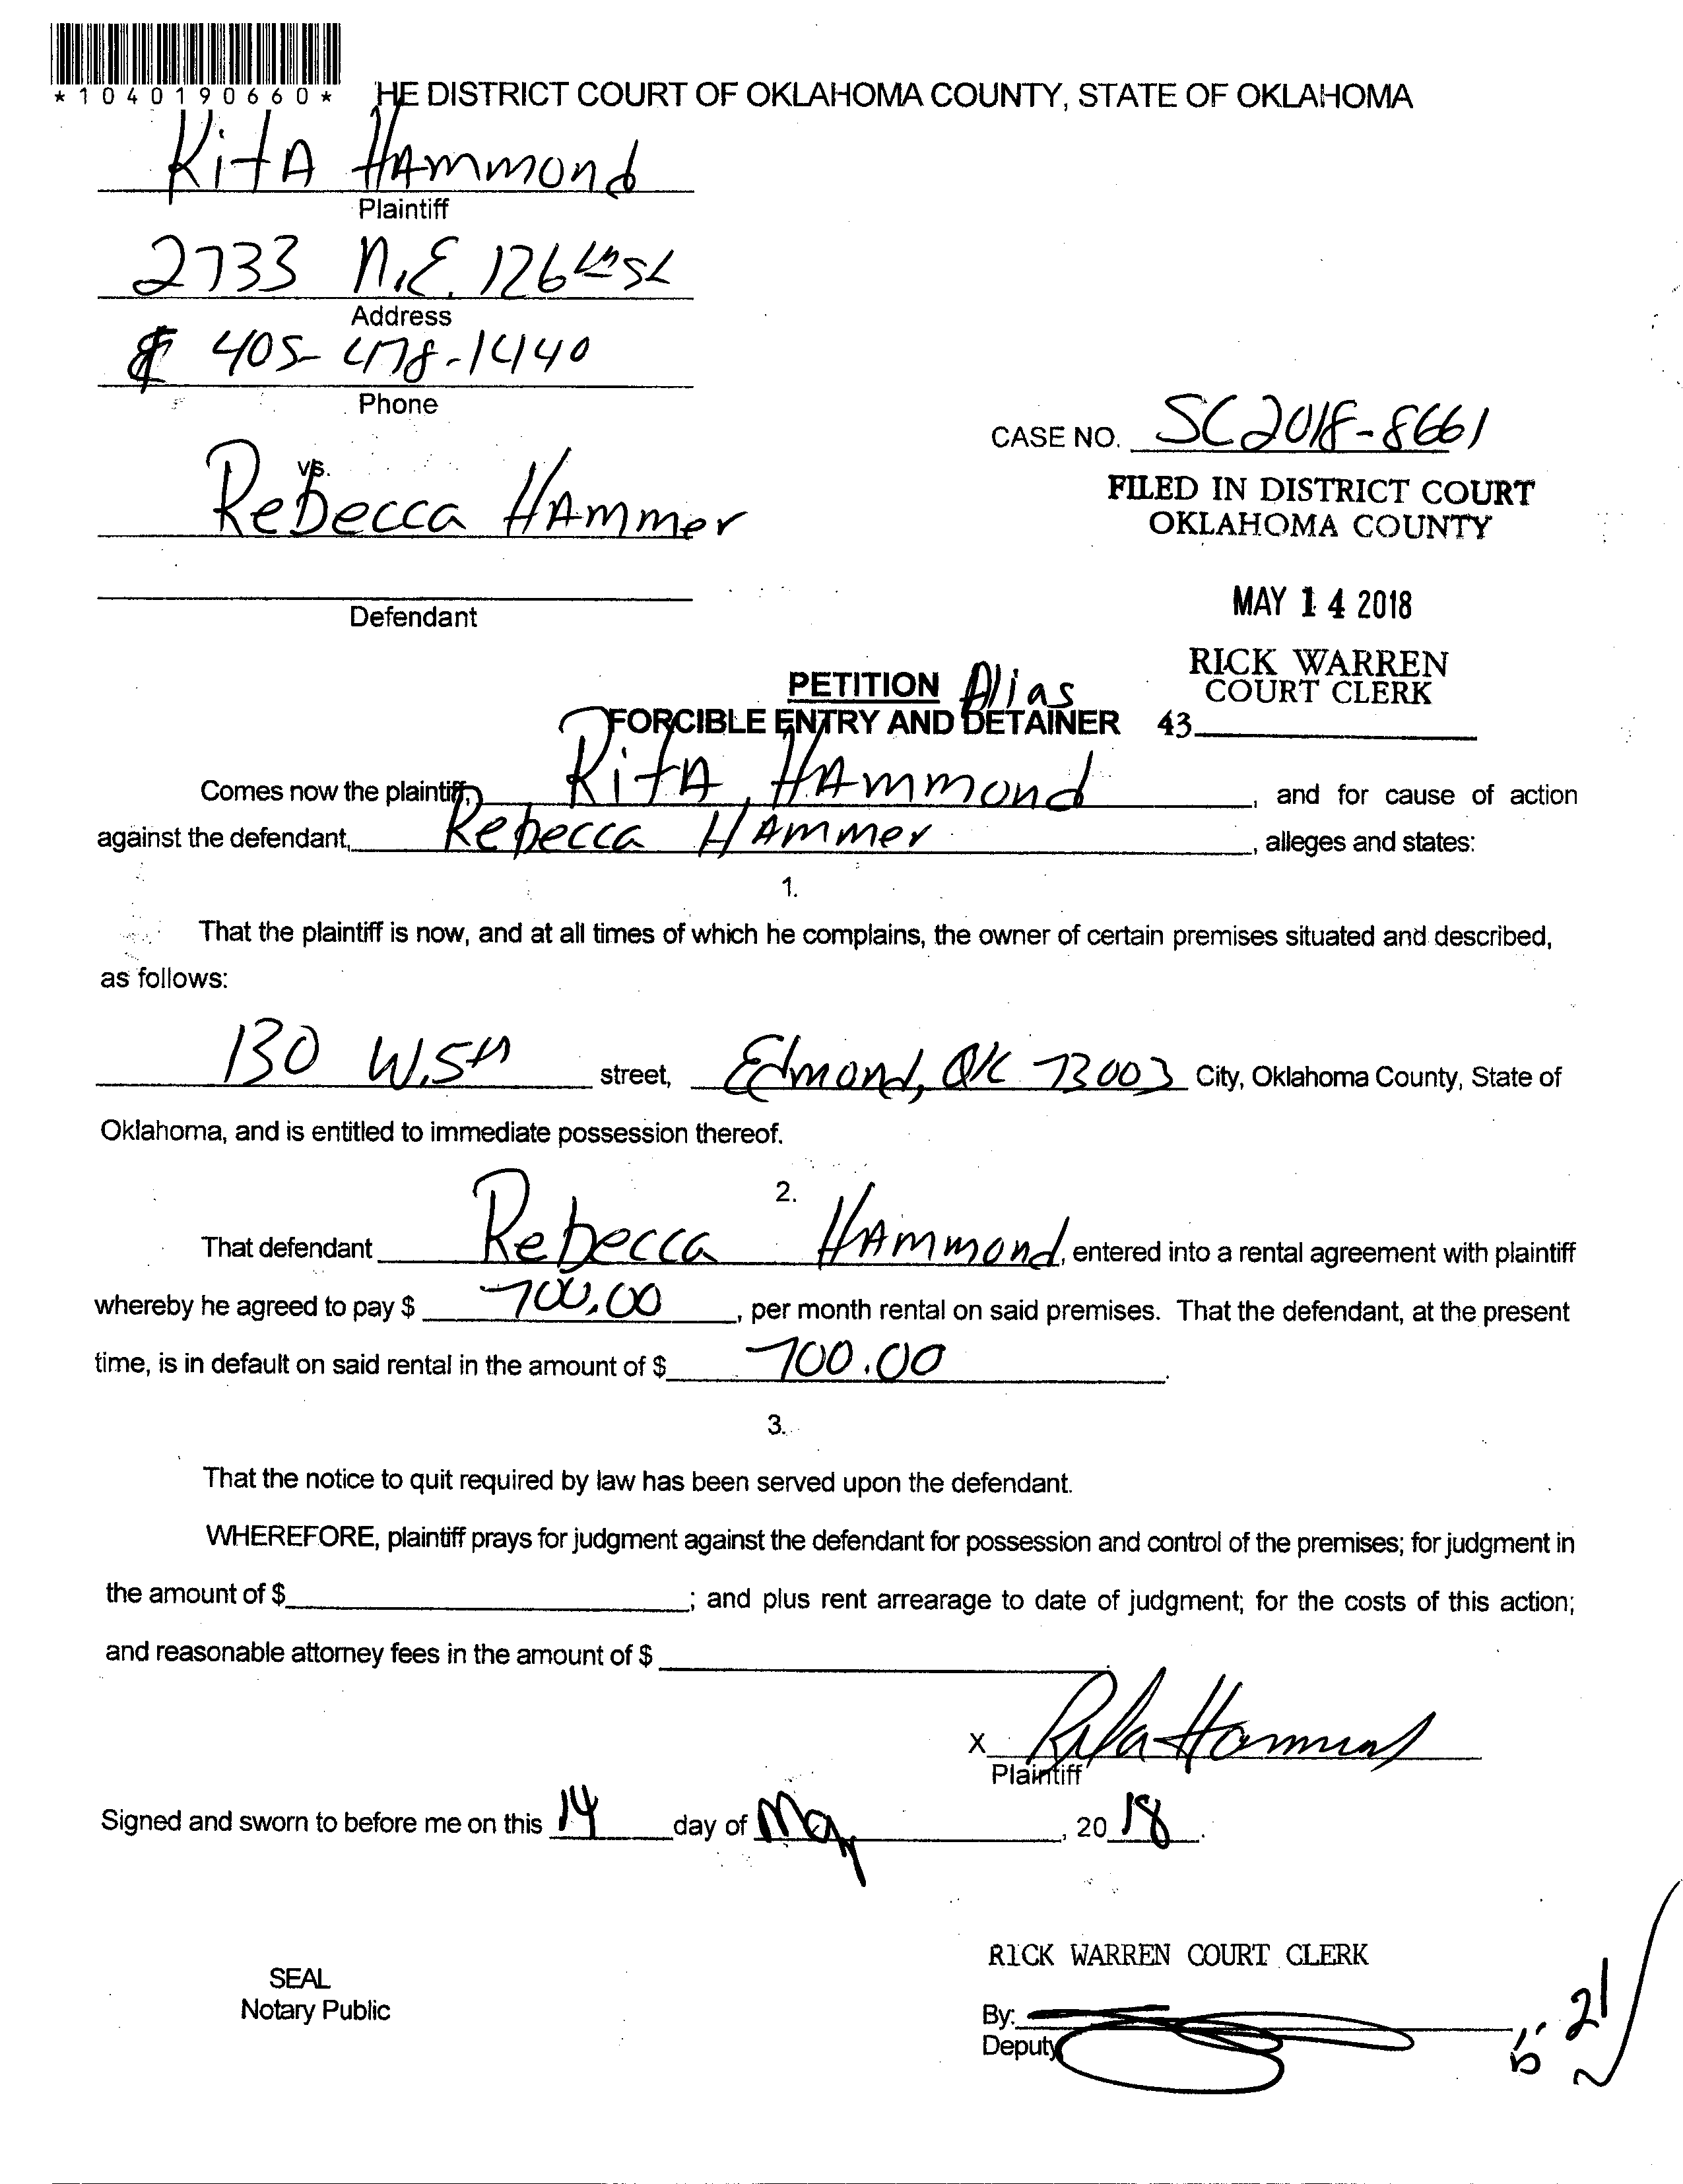 *1040190660*
HE DISTRICT COURT OF OKLAHOMA COUNTY, STATE OF OKLAHOMA
RitA HAmmond
Plaintiff
2733 N.E. 126th St
Address
405-478-1440
Phone
CASE NO. SC2018-8661
vs.
FILED IN DISTRICT COURT
OKLAHOMA COUNTY
Rebecca HAmmer
Defendant
MAY 14 2018
RICK WARREN
COURT CLERK
43
PETITION Alias
FORCIBLE ENTRY AND DETAINER
Comes now the plaintiff, RitA HAmmond, and for cause of action
against the defendant, Rebecca HAmmer, alleges and states:
1.
That the plaintiff is now, and at all times of which he complains, the owner of certain premises situated and described,
as follows:
130 W. 5th street, Edmond, OK 73003 City, Oklahoma County, State of
Oklahoma, and is entitled to immediate possession thereof.
2.
That defendant Rebecca HAmmond, entered into a rental agreement with plaintiff
whereby he agreed to pay $ 700.00, per month rental on said premises. That the defendant, at the present
time, is in default on said rental in the amount of $ 700.00.
3.
That the notice to quit required by law has been served upon the defendant.
WHEREFORE, plaintiff prays for judgment against the defendant for possession and control of the premises; for judgment in
the amount of $ ; and plus rent arrearage to date of judgment; for the costs of this action;
and reasonable attorney fees in the amount of $
X Rita Hammond
Plaintiff
Signed and sworn to before me on this 14 day of May, 2018.
RICK WARREN COURT CLERK
SEAL
Notary Public
By:
Deputy
5-21